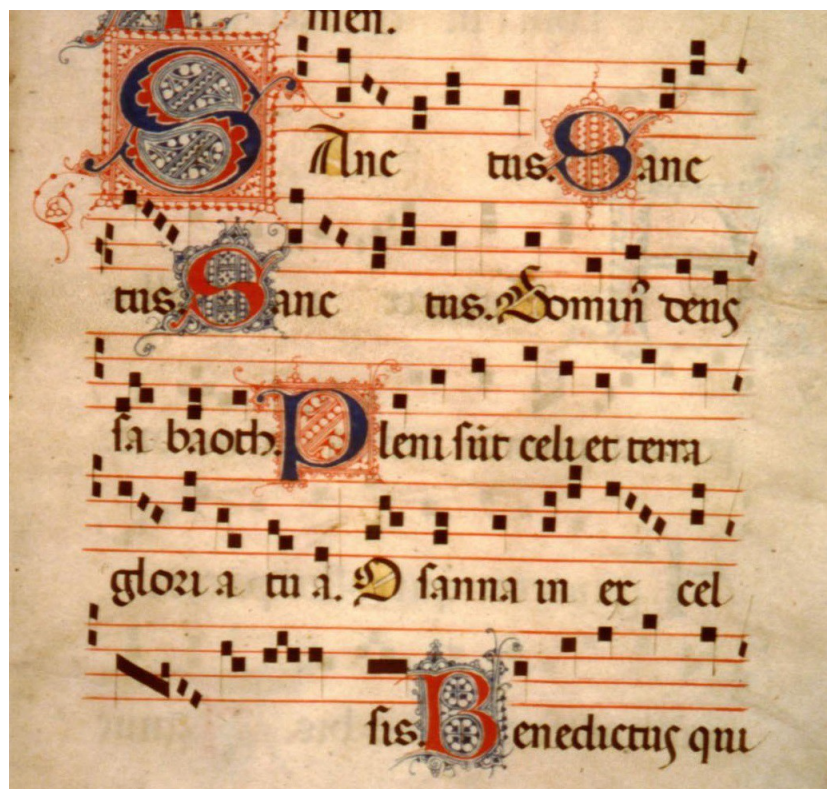 men.
SAnc tus. Sanc
tus. Sanc tus. Domin̄ deus
sa baoth. Pleni sūt celi et terra
glori a tu a. O sanna in ex cel
sis. Benedictus qui